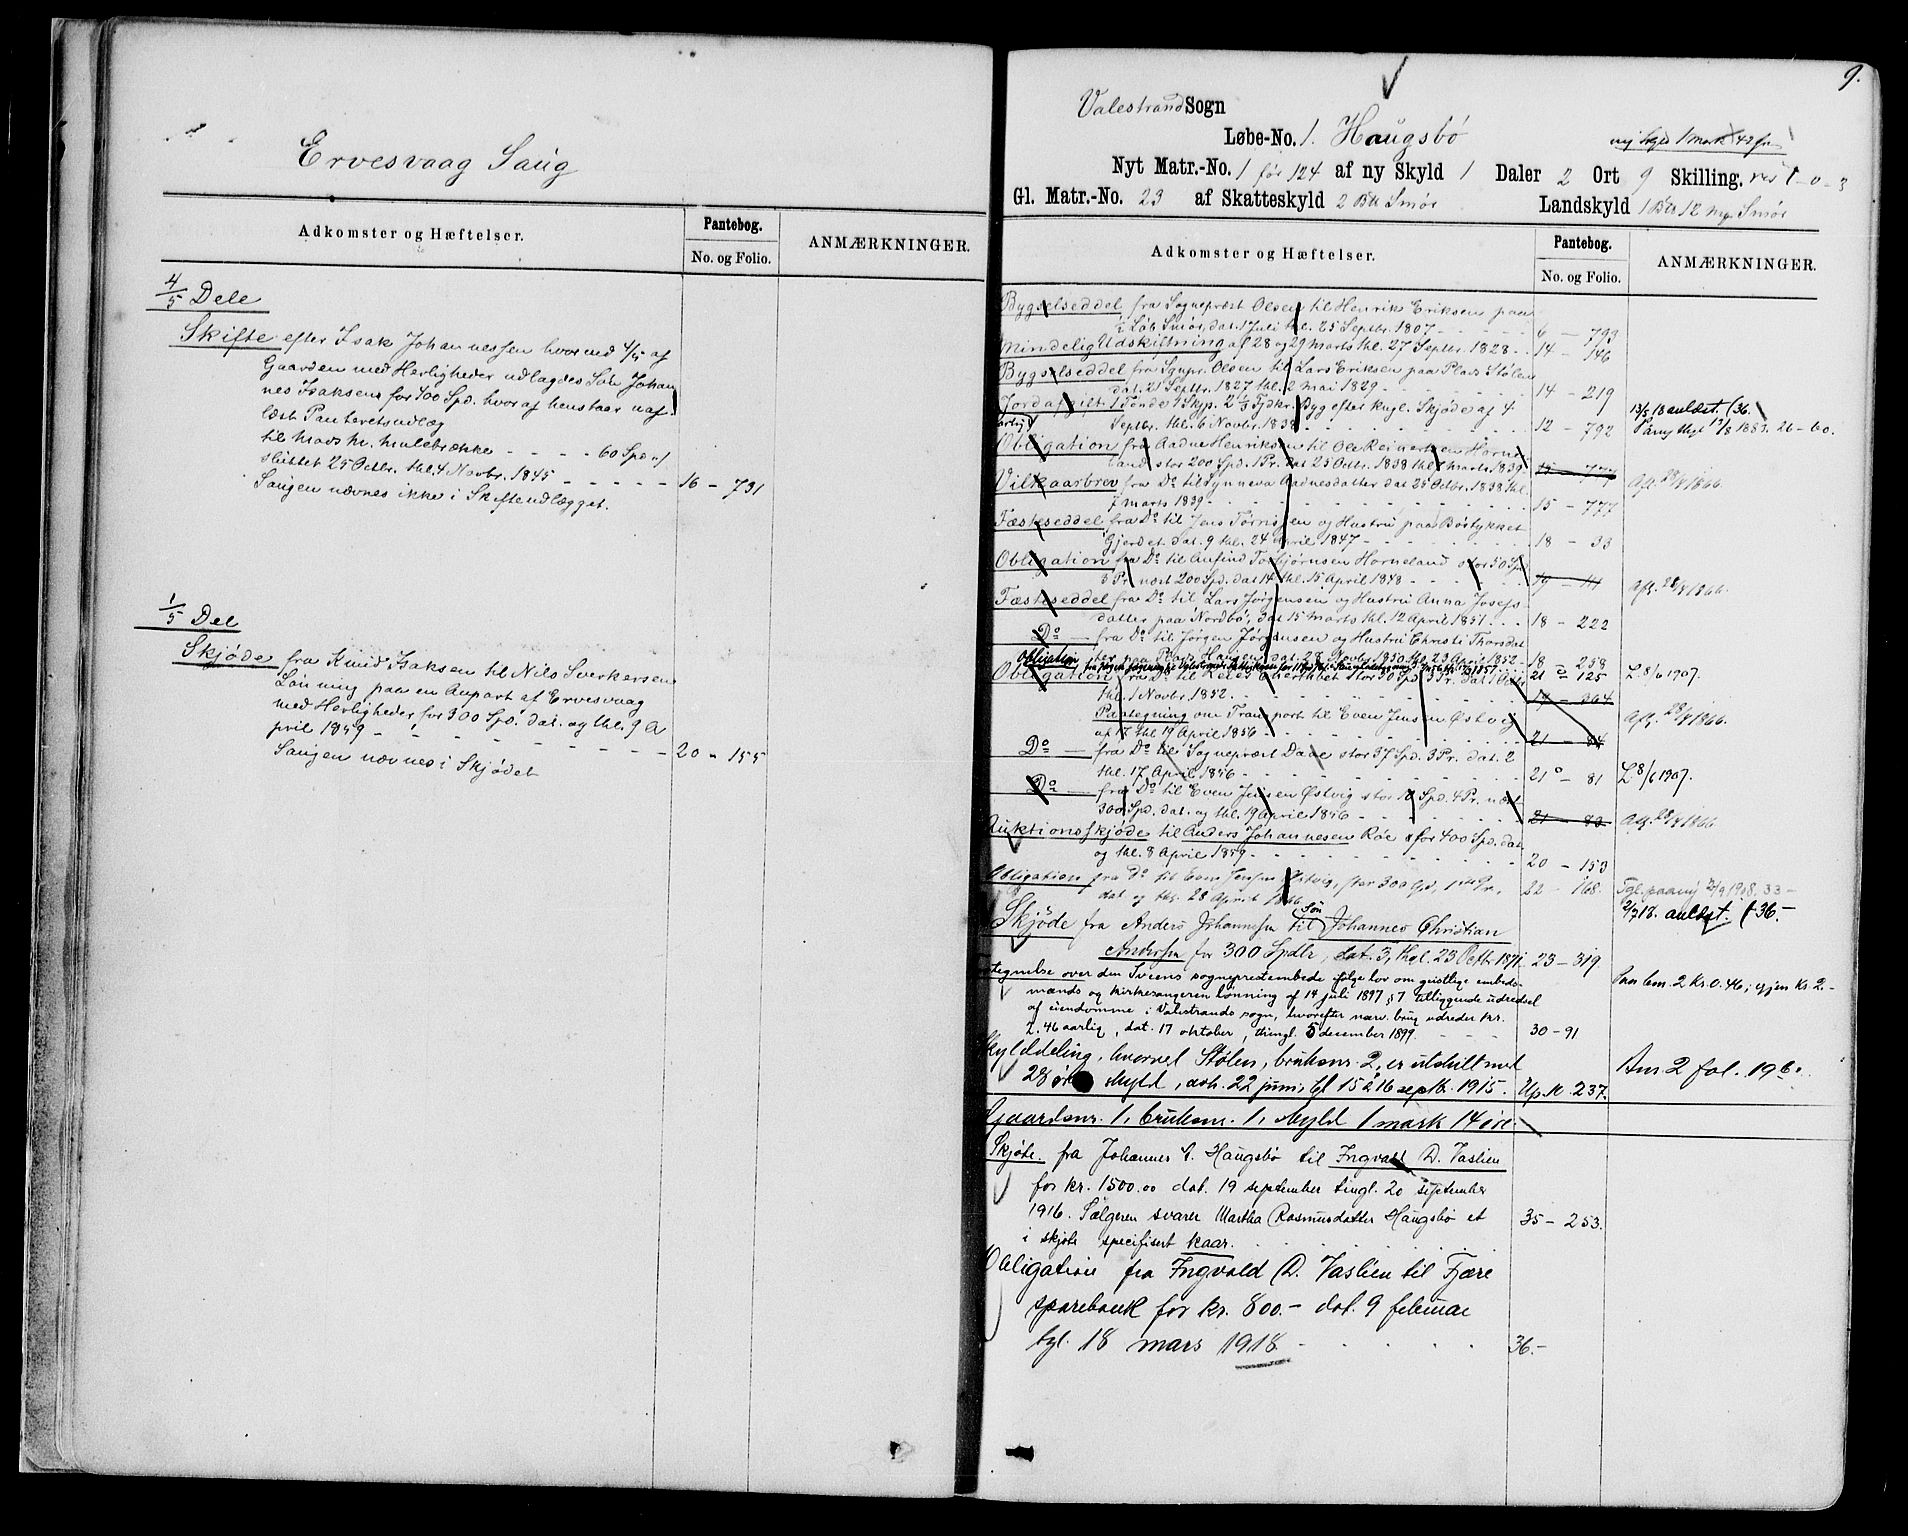 Ervesvaag Saug
Adkomster og Hæftelser.
Pantebog.
No. og Folio.
ANMÆRKNINGER.
4/5 Dele
Skifte efter Isak Johannessen hvorved 4/5 af
Gaarden med Herligheder udlagdes Søn Johan
nes Isaksen for 400 Spd. hvoraf henstaar uaf-
læst Panteretsudlæg
til Mads M. - - - - 60 Spd
sluttet 25 Octbr. thl. 4 Novbr. 1845 - - - - - 16 - 731
Saugen nævnes ikke i Skifteudlægget.
1/5 Del
Skjøde fra Knud Isaksen til Nils Sverkersen
Lønning paa en Anpart af Ervesvaag
med Herligheder for 300 Spd. dat. og thl. 9 A
pril 1859 - - - - - - - - 20 - 155
Saugen nævnes i Skjødet
9.
Valestrand Sogn
Løbe-No. 1. Haugsbø
ny skyld 1 mark 42 øre
Nyt Matr.-No. 1 før 124 af ny Skyld 1 Daler 2 Ort 9 Skilling. rest 1-0-3
Gl. Matr.-No. 23 af Skatteskyld 2 Smør Landskyld 1 12 Smør
Adkomster og Hæftelser.
Pantebog.
No. og Folio.
ANMÆRKNINGER.
Bygselseddel fra Sognepræst Olsen til Henrik Eriksen paa
Løb Smør, dat. 1 Juli thl. 25 Septbr. 1807 - - - - 6 - 793
Mindelig Udskiftning af 28 og 29 Marts thl. 27 Septbr. 1828 - - 14 - 146
Bygselseddel fra Sgnpr. Olsen til Lars Eriksen paa Plads Stølen
dat. 21 Septbr. 1827 thl. 2 Mai 1829 - - - - 14 - 219
Jordafgift 1 Tønde 1 Skjp. 2 1/3 Fjdkr. Byg efter kngl. Skjøde af 4
Septbr. thl. 6 Novbr. 1838 - - - - 12 - 792
13/3 18 avlæst. (36.
Paany thgl. 13/8 1883. 21 - 60.
Obligation fra Aadne Henriksen til Ole Reinertsen Horne
land stor 200 Spd. 1 Pr. dat 25 Octbr. 1838 thl. 7 Marts 1839 15 - 774
Afl. 28/4 1866
Vilkaarbrev fra Do til Synneva Aadnesdatter dat 25 Octbr. 1838 thl.
7 Marts 1839 - - - - 15 - 777
Fæsteseddel fra Do til Jens Tørrissen og Hustru paa Bøstykket
Gjerdet. dat. 9 thl. 24 April 1847 - - - - 18 - 33
Obligation fra Do til Anfind Torbjørnsen Horneland stor 50 Spd
3 Pr. næst 200 Spd. dat 14 thl. 15 April 1848 - - - -
Afl. 28/4 1866.
Fæsteseddel fra Do til Lars Jørgensen og Hustru Anna Josefs-
datter paa Nordbø, dat 15 Marts thl. 12 April 1851 - - - 18 - 222
Do — fra Do til Jørgen Jørgensen og Hustru Christi Thorsdat
ter paa Plads Haugen, dat. 28 Novbr. 1850 thl. 23 April 1852 - 18 - 258
Obligation
21 - 125
L. 8/6 1907.
Obligation fra Do til stor 50 Spd 3 Pr. dat 1 Octbr
thl. 1 Novbr. 1852. - - - - 17 - 364
Afl. 28/4 1866.
Paategning om Transport til Even Jensen Østvig
af 17 thl 19 April 1856 - - - - 21 - 84
Do — fra Do til Sognepræst Daae stor 37 Spd. 3 Pr. dat. 2
thl. 17 April 1856 - - - - 21 - 81
L. 8/6 1907.
Do — fra Do til Even Jensen Østvig stor 18 Spd. 4 Pr. næst
300 Spd. dat. og thl. 19 April 1856 - - - - 21 - 83
Afl. 28/4 1866
Auktionsskjøde til Anders Johannesen Røe for 400 Spd. dat
og thl. 8 April 1859 - - - - 20 - 153
Obligation fra Do til Even Jensen Østvig, stor 300 Spd, 1ste Pr.,
dat og thg. 28 April 1866 22 - 168.
Tgl. paany 2/9 1908. 33 -
2/7 18. avlæst. (36.-
Skjøde fra Anders Johannesen til Søn Johannes Christian
Andersen for 300 Spdlr, dat. 3, thgl. 23 Octb. 1871. 23 - 319.
Fortegnelse over den Sveens sogneprestembede følge lov om geistlige embeds-
mænds og kirkesangeren lønning af 14 juli 1897 § 7 tilliggende udredsel
af eiendomme i Valestrands sogn, hvorefter nærv. brug udreder kr.
2.46 aarlig, dat. 17 oktober, thingl. 5 december 1899. 30 - 91
Paa bem. 2 Kr. 0.46, igjen Kr. 2.-
Skylddeling, hvorved Stølen, bruksnr. 2, er utskilt med
28 øre skyld, avh. 22 juni, tgl 15 à 16 septbr. 1915. Up. N. 237.
Bnr. 2 fol. 196.
Gaardsnr. 1, bruksnr. 1, skyld 1 mark 14 øre.
Skjøte. fra Johannes C. Haugsbø til Ingvald D. Vaslien
for kr. 1500.00 dat. 19 september tingl. 20 september
1916. Sælgeren svarer Martha Rasmusdatter Haugsbø et 35 - 253.
i skjøte specifisert kaar.
Obligation fra Ingvald D. Vaslien til Fjære
sparebank for kr. 800.- dat. 9 februar
tgl. 18 mars 1918 - - - - 36.-